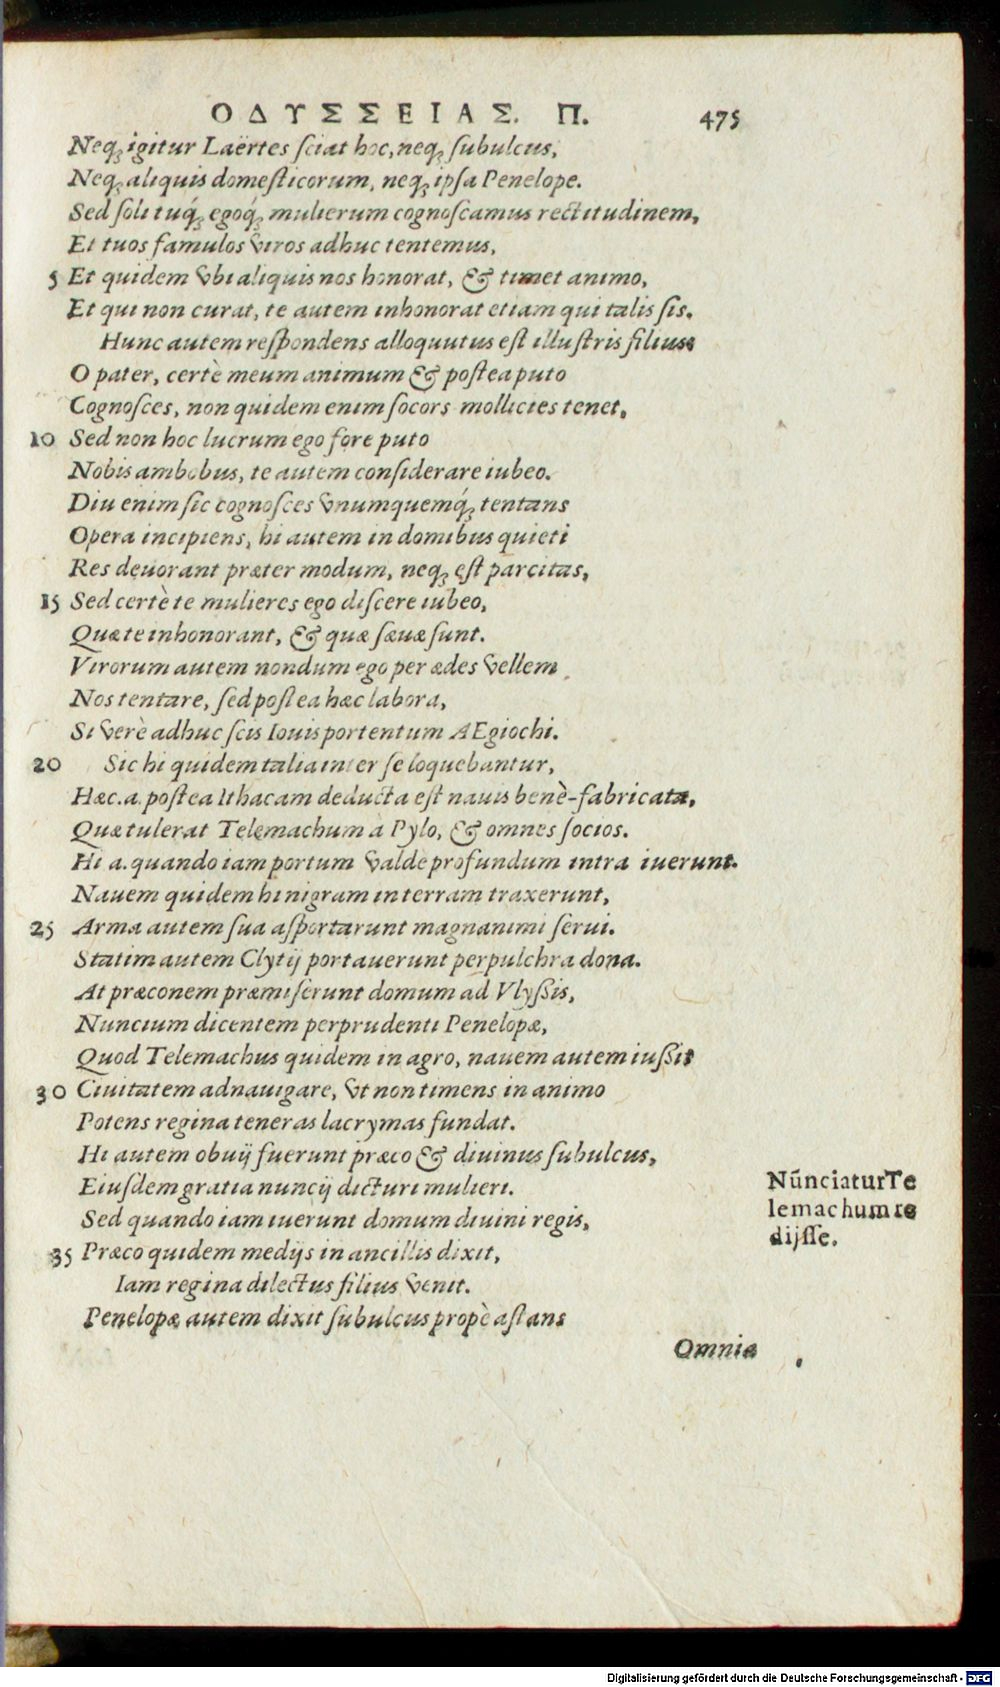 ΟΔΥΣΣΕΙΑΣ. Π. 475
Neq; igitur Laërtes ſciat hoc, neq; ſubulcus,
Neq; aliquis domeſticorum, neq; ipſa Penelope.
Sed ſoli tuq́; egoq́; mulierum cognoſcamus rectitudinem,
Et tuos famulos viros adhuc tentemus,
5 Et quidem vbi aliquis nos honorat, & timet animo,
Et qui non curat, te autem inhonorat etiam qui talis ſis.
Hunc autem reſpondens alloquutus eſt illuſtris filius:
O pater, certè meum animum & poſtea puto
Cognoſces, non quidem enim ſocors mollicies tenet,
10 Sed non hoc lucrum ego fore puto
Nobis ambobus, te autem conſiderare iubeo.
Diu enim ſic cognoſces vnumquemq́; tentans
Opera incipiens, hi autem in domibus quieti
Res deuorant præter modum, neq; eſt parcitas,
15 Sed certè te mulieres ego diſcere iubeo,
Quæ te inhonorant, & quæ ſæuæ ſunt.
Virorum autem nondum ego per ædes vellem
Nos tentare, ſed poſtea hæc labora,
Si verè adhuc ſcis Iouis portentum AEgiochi.
20 Sic hi quidem talia inter ſe loquebantur,
Hæc.a. poſtea Ithacam deducta eſt nauis benè-fabricata,
Quæ tulerat Telemachum à Pylo, & omnes ſocios.
Hi a. quando iam portum valde profundum intra iuerunt.
Nauem quidem hi nigram in terram traxerunt,
25 Arma autem ſua aſportarunt magnanimi ſerui.
Statim autem Clytij portauerunt perpulchra dona.
At præconem præmiſerunt domum ad Vlyſsis,
Nuncium dicentem perprudenti Penelopæ,
Quod Telemachus quidem in agro, nauem autem iuſsit
30 Ciuitatem adnauigare, vt non timens in animo
Potens regina teneras lacrymas fundat.
Hi autem obuij fuerunt præco & diuinus ſubulcus,
Eiuſdem gratia nuncij dicturi mulieri.
Sed quando iam iuerunt domum diuini regis,
35 Præco quidem medijs in ancillis dixit,
Iam regina dilectus filius venit.
Penelopæ autem dixit ſubulcus propè aſtans
Omnia
Nūnciatur Te
lemachum re
dijſſe.
Digitalisierung gefördert durch die Deutsche Forschungsgemeinschaft - DFG